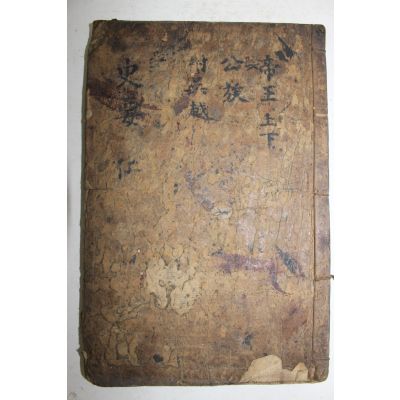 帝王上下
公族
附吳越
史要 仁